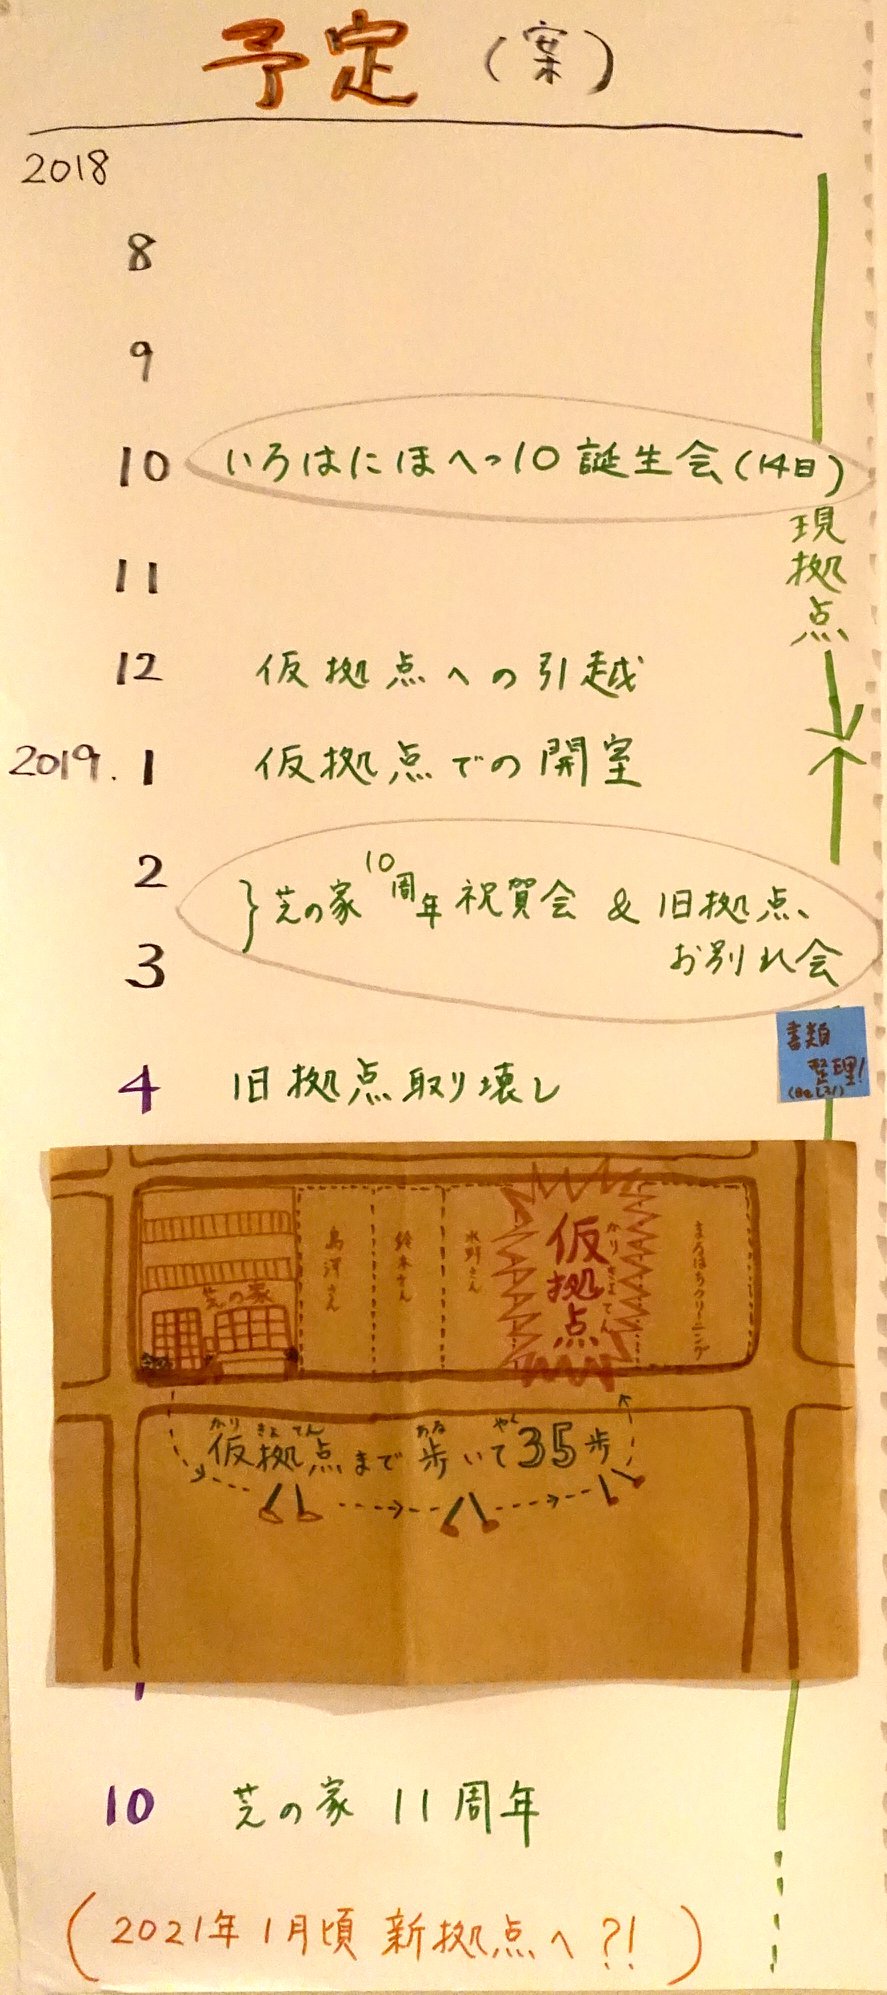 予定（案）
2018
8
9
10 いろはにほへっ10誕生会(14日)
11
現拠点
12 仮拠点への引越
2019.1 仮拠点での開室
2
3
芝の家10周年祝賀会 & 旧拠点
お別れ会
書類
整理!
4 旧拠点取り壊し
芝の家
鈴木さん
水野さん
かりきょてん
仮拠点
まるはちクリーニング
かり きょ てん ある
仮拠点まで歩いて35歩
10 芝の家 11周年
(2021年1月頃 新拠点へ?!)